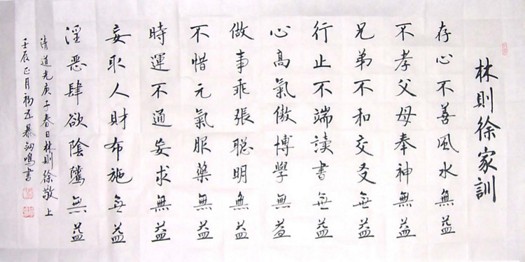 林則徐家訓
存心不善風水無益
不孝父母奉神無益
兄弟不和交友無益
行止不端讀書無益
心高氣傲博學無益
做事乖張聰明無益
不惜元氣服藥無益
時運不通妄求無益
妄取人財布施無益
淫惡肆欲陰騭無益
清道光庚子春日林則徐敬上
壬辰正月初五鳴書